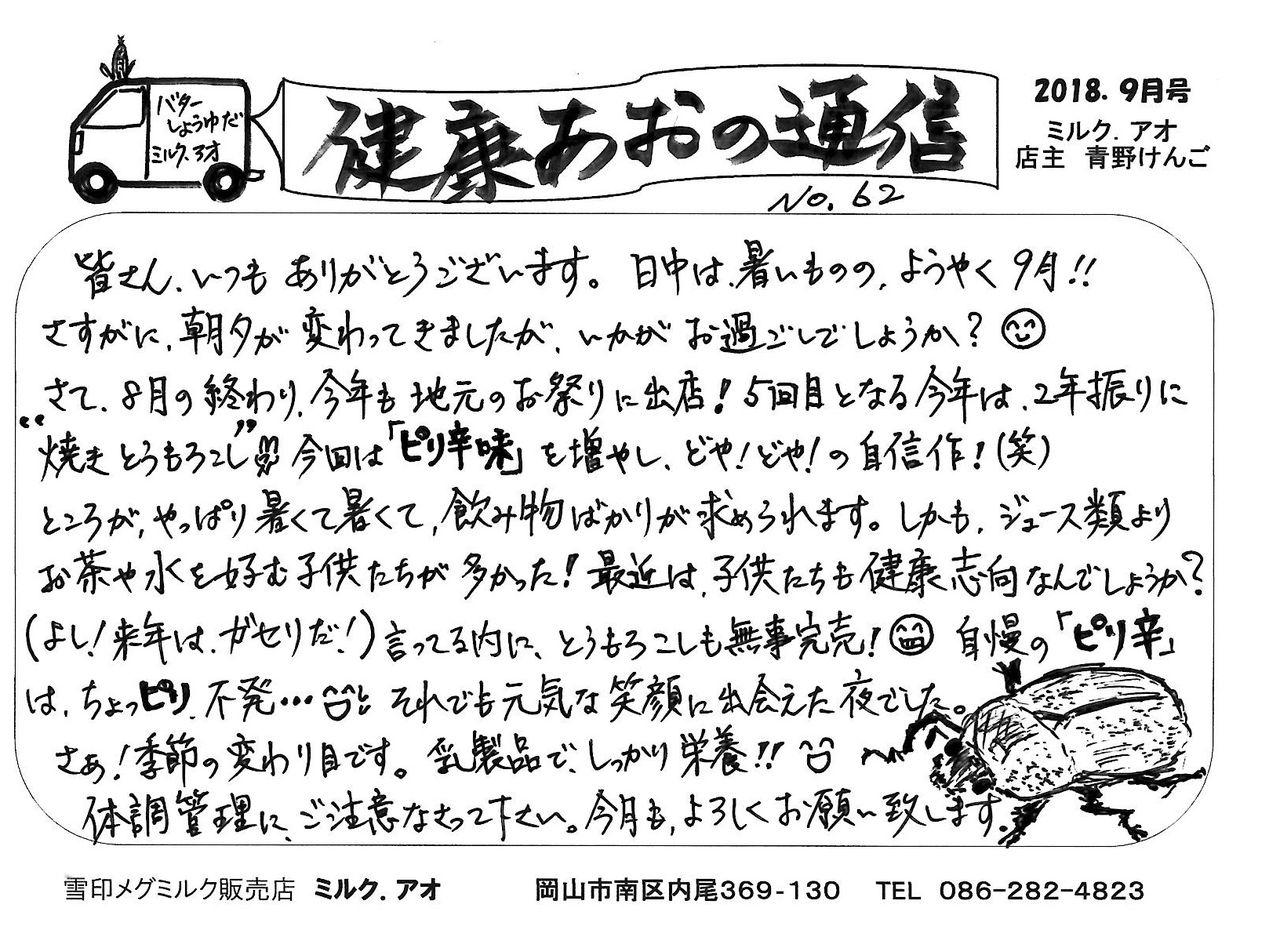 バター
しょうゆだ
ミルク.アオ
健康あおの通信
No.62
2018.9月号
ミルク.アオ
店主 青野けんご
皆さん、いつも ありがとうございます。日中は、暑いものの、ようやく 9月!!
さすがに、朝夕が 変わってきましたが、いかが お過ごしでしょうか?
さて、8月の終わり、今年も 地元のお祭りに出店!5回目となる今年は、2年振りに
“焼きとうもろこし” 今回は「ピリ辛味」を増やし、どや!どや!の自信作!(笑)
ところが、やっぱり 暑くて暑くて、飲み物ばかりが求められます。しかも、ジュース類より
お茶や水を好む子供たちが 多かった!最近は、子供たちも健康志向なんでしょうか?
(よし!来年は、ガセリだ!)言ってる内に、とうもろこしも無事完売! 自慢の「ピリ辛」
は、ちょっピリ、不発… それでも元気な笑顔に出会えた夜でした。
さあ!季節の変わり目です。乳製品で、しっかり栄養!!
体調管理に、ご注意なさって下さい。今月も、よろしくお願い致します。
雪印メグミルク販売店 ミルク.アオ 岡山市南区内尾369-130 TEL 086-282-4823